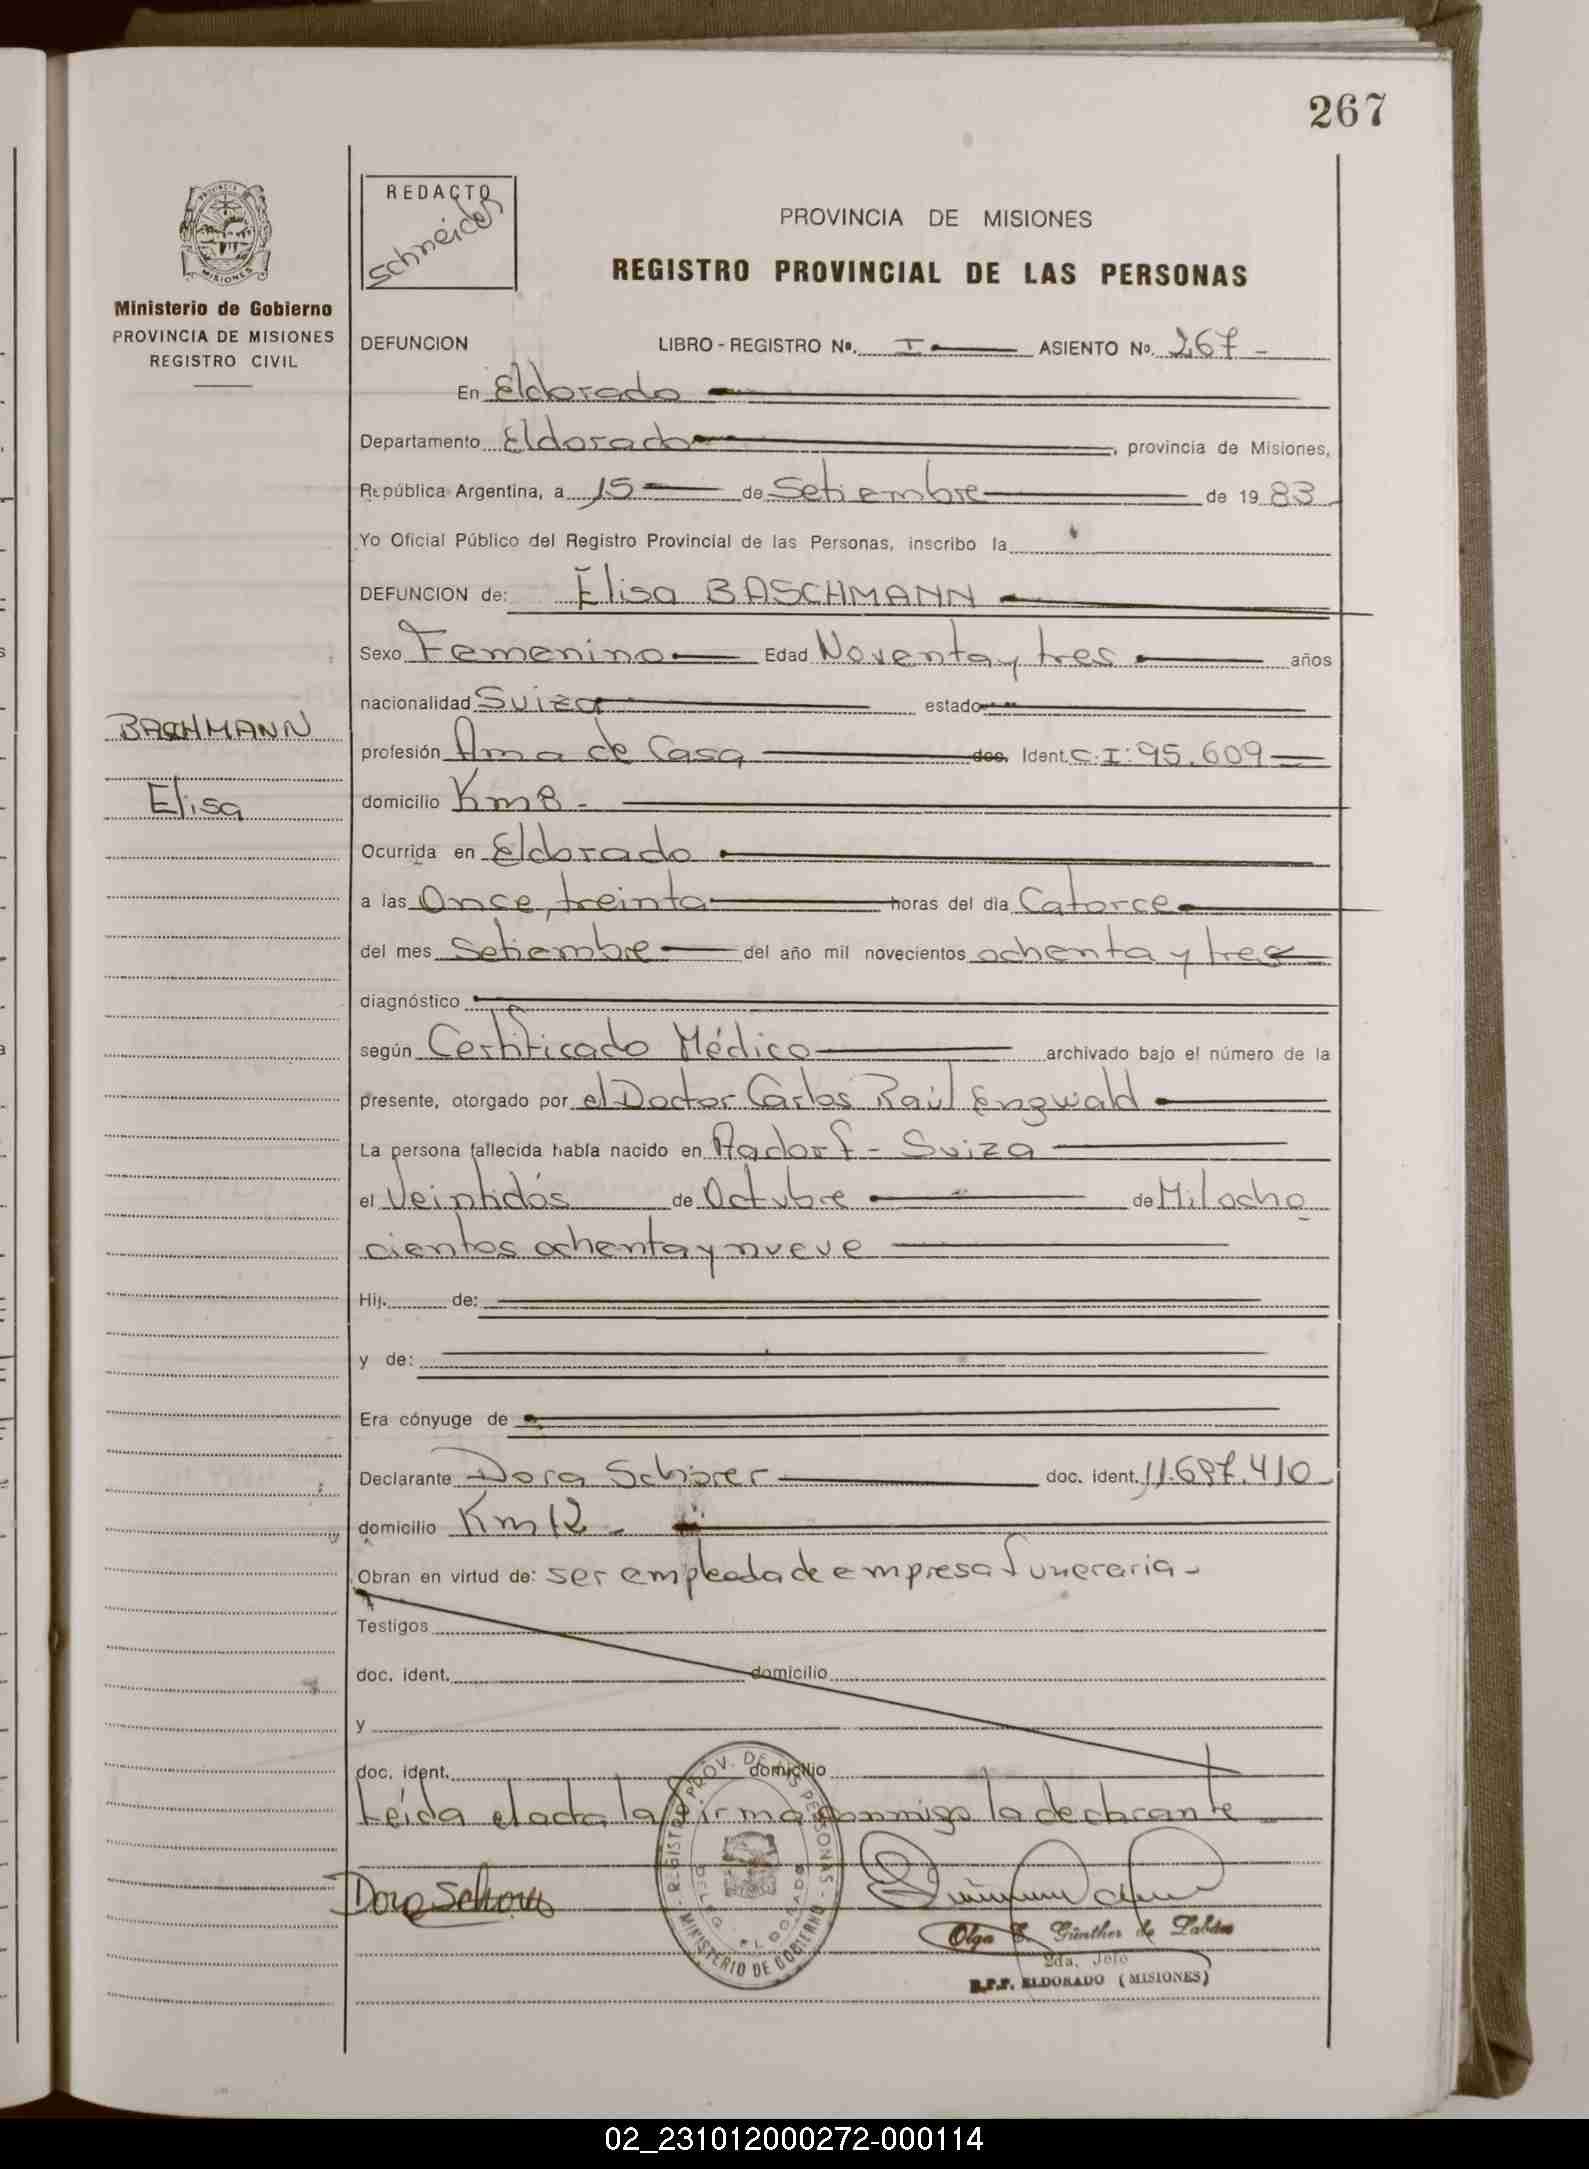 267
REDACTO
Schneider
PROVINCIA DE MISIONES
REGISTRO PROVINCIAL DE LAS PERSONAS
Ministerio de Gobierno
PROVINCIA DE MISIONES
REGISTRO CIVIL
DEFUNCION LIBRO - REGISTRO Nº. I ASIENTO Nº. 267 -
En Eldorado
Departamento Eldorado, provincia de Misiones,
República Argentina, a 15 de Setiembre de 1983
Yo Oficial Público del Registro Provincial de las Personas, inscribo la
DEFUNCION de: Elisa BASCHMANN
Sexo Femenino Edad Noventa y tres años
nacionalidad Suiza estado
BASCHMANN
Elisa
profesión Ama de Casa doc. Ident. C.I: 95.609
domicilio Km 8 -
Ocurrida en Eldorado
a las Once, treinta horas del día Catorce
del mes Setiembre del año mil novecientos ochenta y tres
diagnóstico
según Certificado Médico archivado bajo el número de la
presente, otorgado por el Doctor Carlos Raúl Engwald
La persona fallecida había nacido en Aadorf - Suiza
el Veintidós de Octubre de Mil ocho
cientos ochenta y nueve
Hij. de:
y de:
Era cónyuge de
Declarante Dora Schörer doc. ident. 11.697.410
domicilio Km 12 -
Obran en virtud de: ser empleada de empresa funeraria -
Testigos
doc. ident. domicilio
y
doc. ident. domicilio
Leída el acta la firma conmigo la declarante
REGISTRO PROV. DE LAS PERSONAS - MINISTERIO DE GOBIERNO -
DELEG. ELDORADO
Olga E. Günther de
2da. Jefe
R.P.P. ELDORADO (MISIONES)
02_231012000272-000114